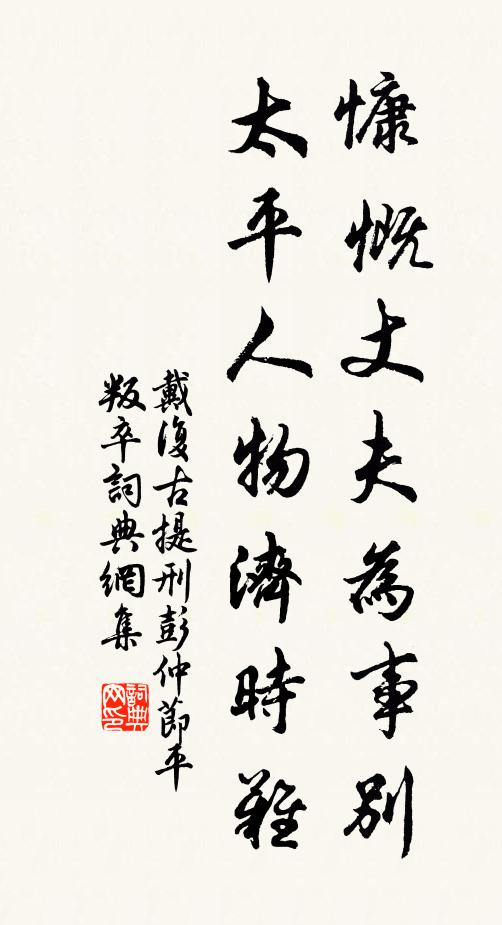 慷慨丈夫為事別
太平人物濟時難
戴復古提刑彭仲節平
叛卒詞典網集
詞典网印